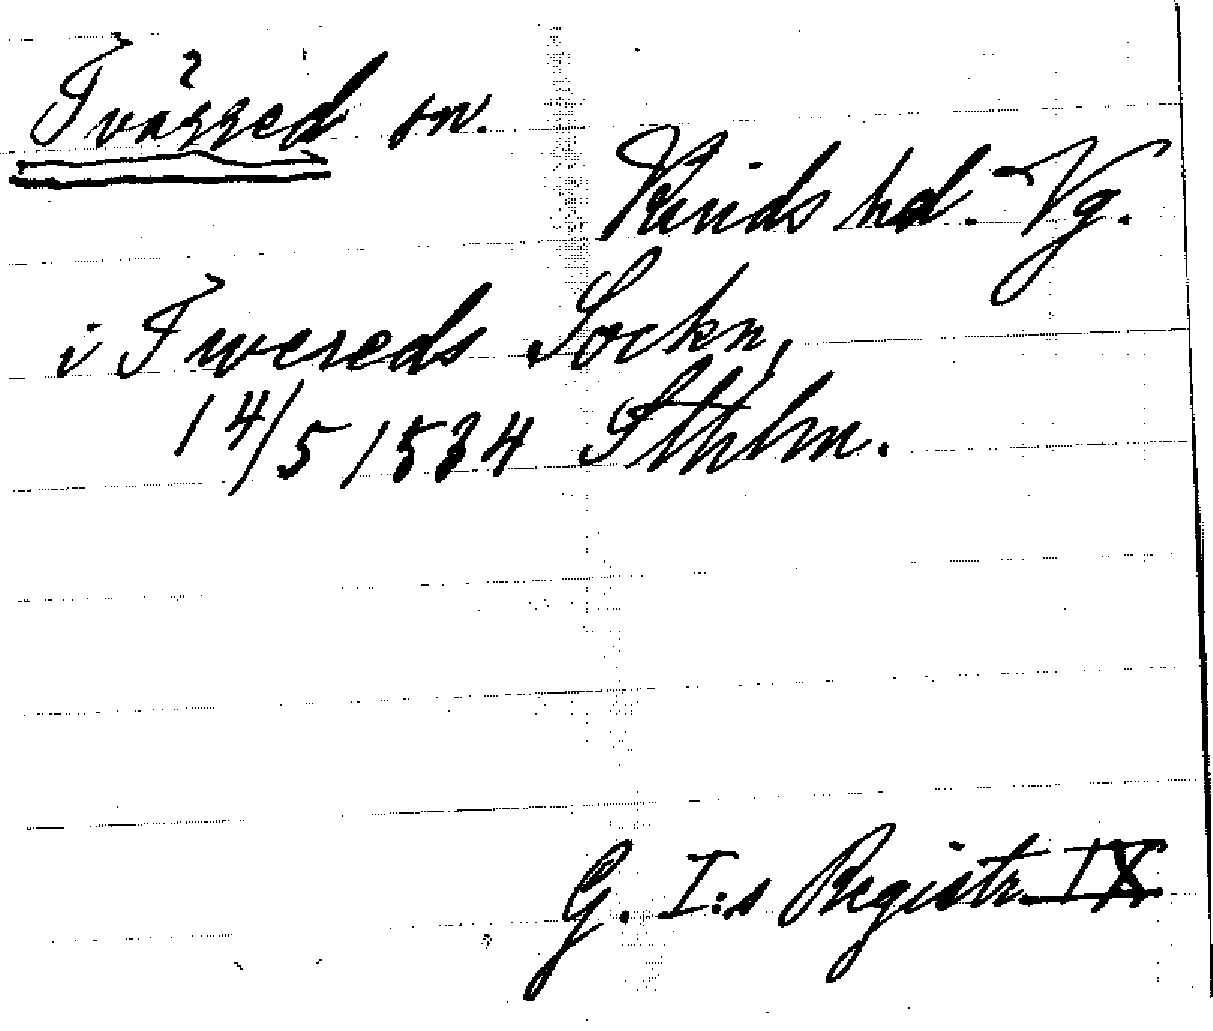 Tvärred sn.
Kinds hd. Vg.
i Twereds Sockn,
14/5 1534 Sthlm.
G. I:s Registr. IX